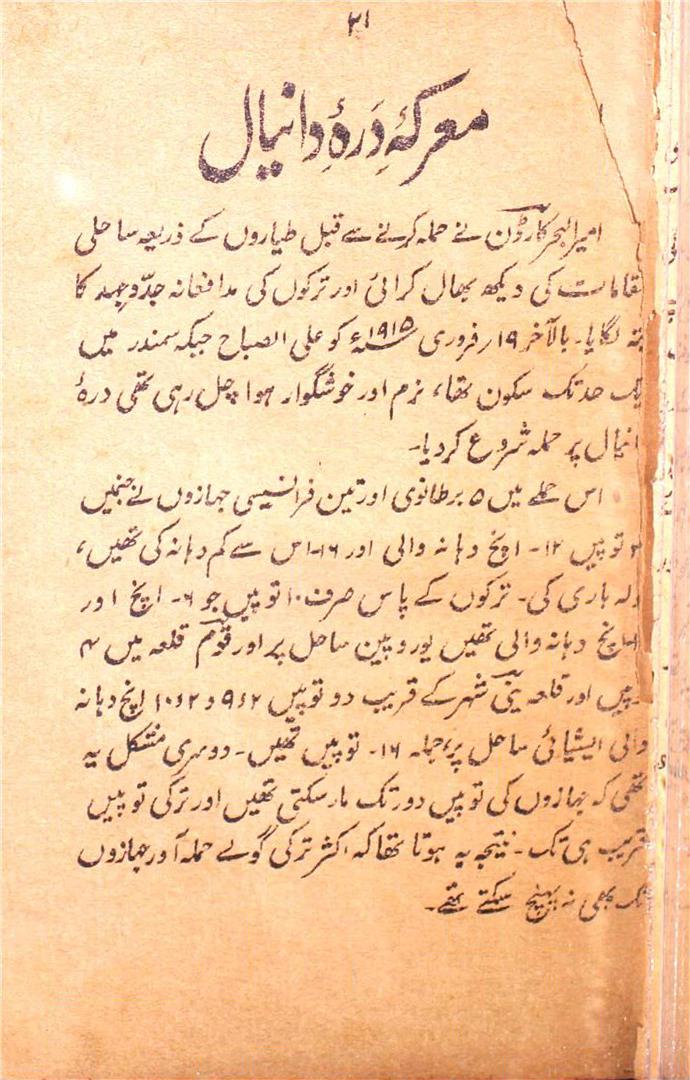 ۲۱
معرکۂ درۂ دانیال
امیرالبحر کارڈون نے حملہ کرنے سے قبل طیاروں کے ذریعہ ساحلی
مقامات کی دیکھ بھال کرائی اور ترکوں کی مدافعانہ جدّوجہد کا
پتہ لگایا۔ بالآخر ۱۹ر فروری ۱۹۱۵ء کو علی الصباح جبکہ سمندر میں
یک حد تک سکون تھا، نرم اور خوشگوار ہوا چل رہی تھی درۂ
انیال پر حملہ شروع کردیا۔
اس حملے میں ۵ برطانوی اور تین فرانسیسی جہازوں نے جنمیں
توپیں ۱۲- اپخ دہانہ والی اور ۱۶-اس سے کم دہانہ کی تھیں،
ولہ باری کی۔ ترکوں کے پاس صرف ۱۰ توپیں جو ۶- اپخ اور
اپخ دہانہ والی تھیں یوروپین ساحل پر اور قوم قلعہ میں ۴
پیں اور قلعہ ینی شہر کے قریب دو توپیں ۹٫۲ و ۱۰٫۲ اپخ دہانہ
والی ایشیائی ساحل پر، جملہ ۱۶- توپیں تھیں۔ دوسری مشکل یہ
تھی کہ جہازوں کی توپیں دور تک مار سکتی تھیں اور ترکی توپیں
قریب ہی تک۔ نتیجہ یہ ہوتا تھا کہ اکثر ترکی گولے حملہ آور جہازوں
تک بھی نہ پہنچ سکتے تھے۔